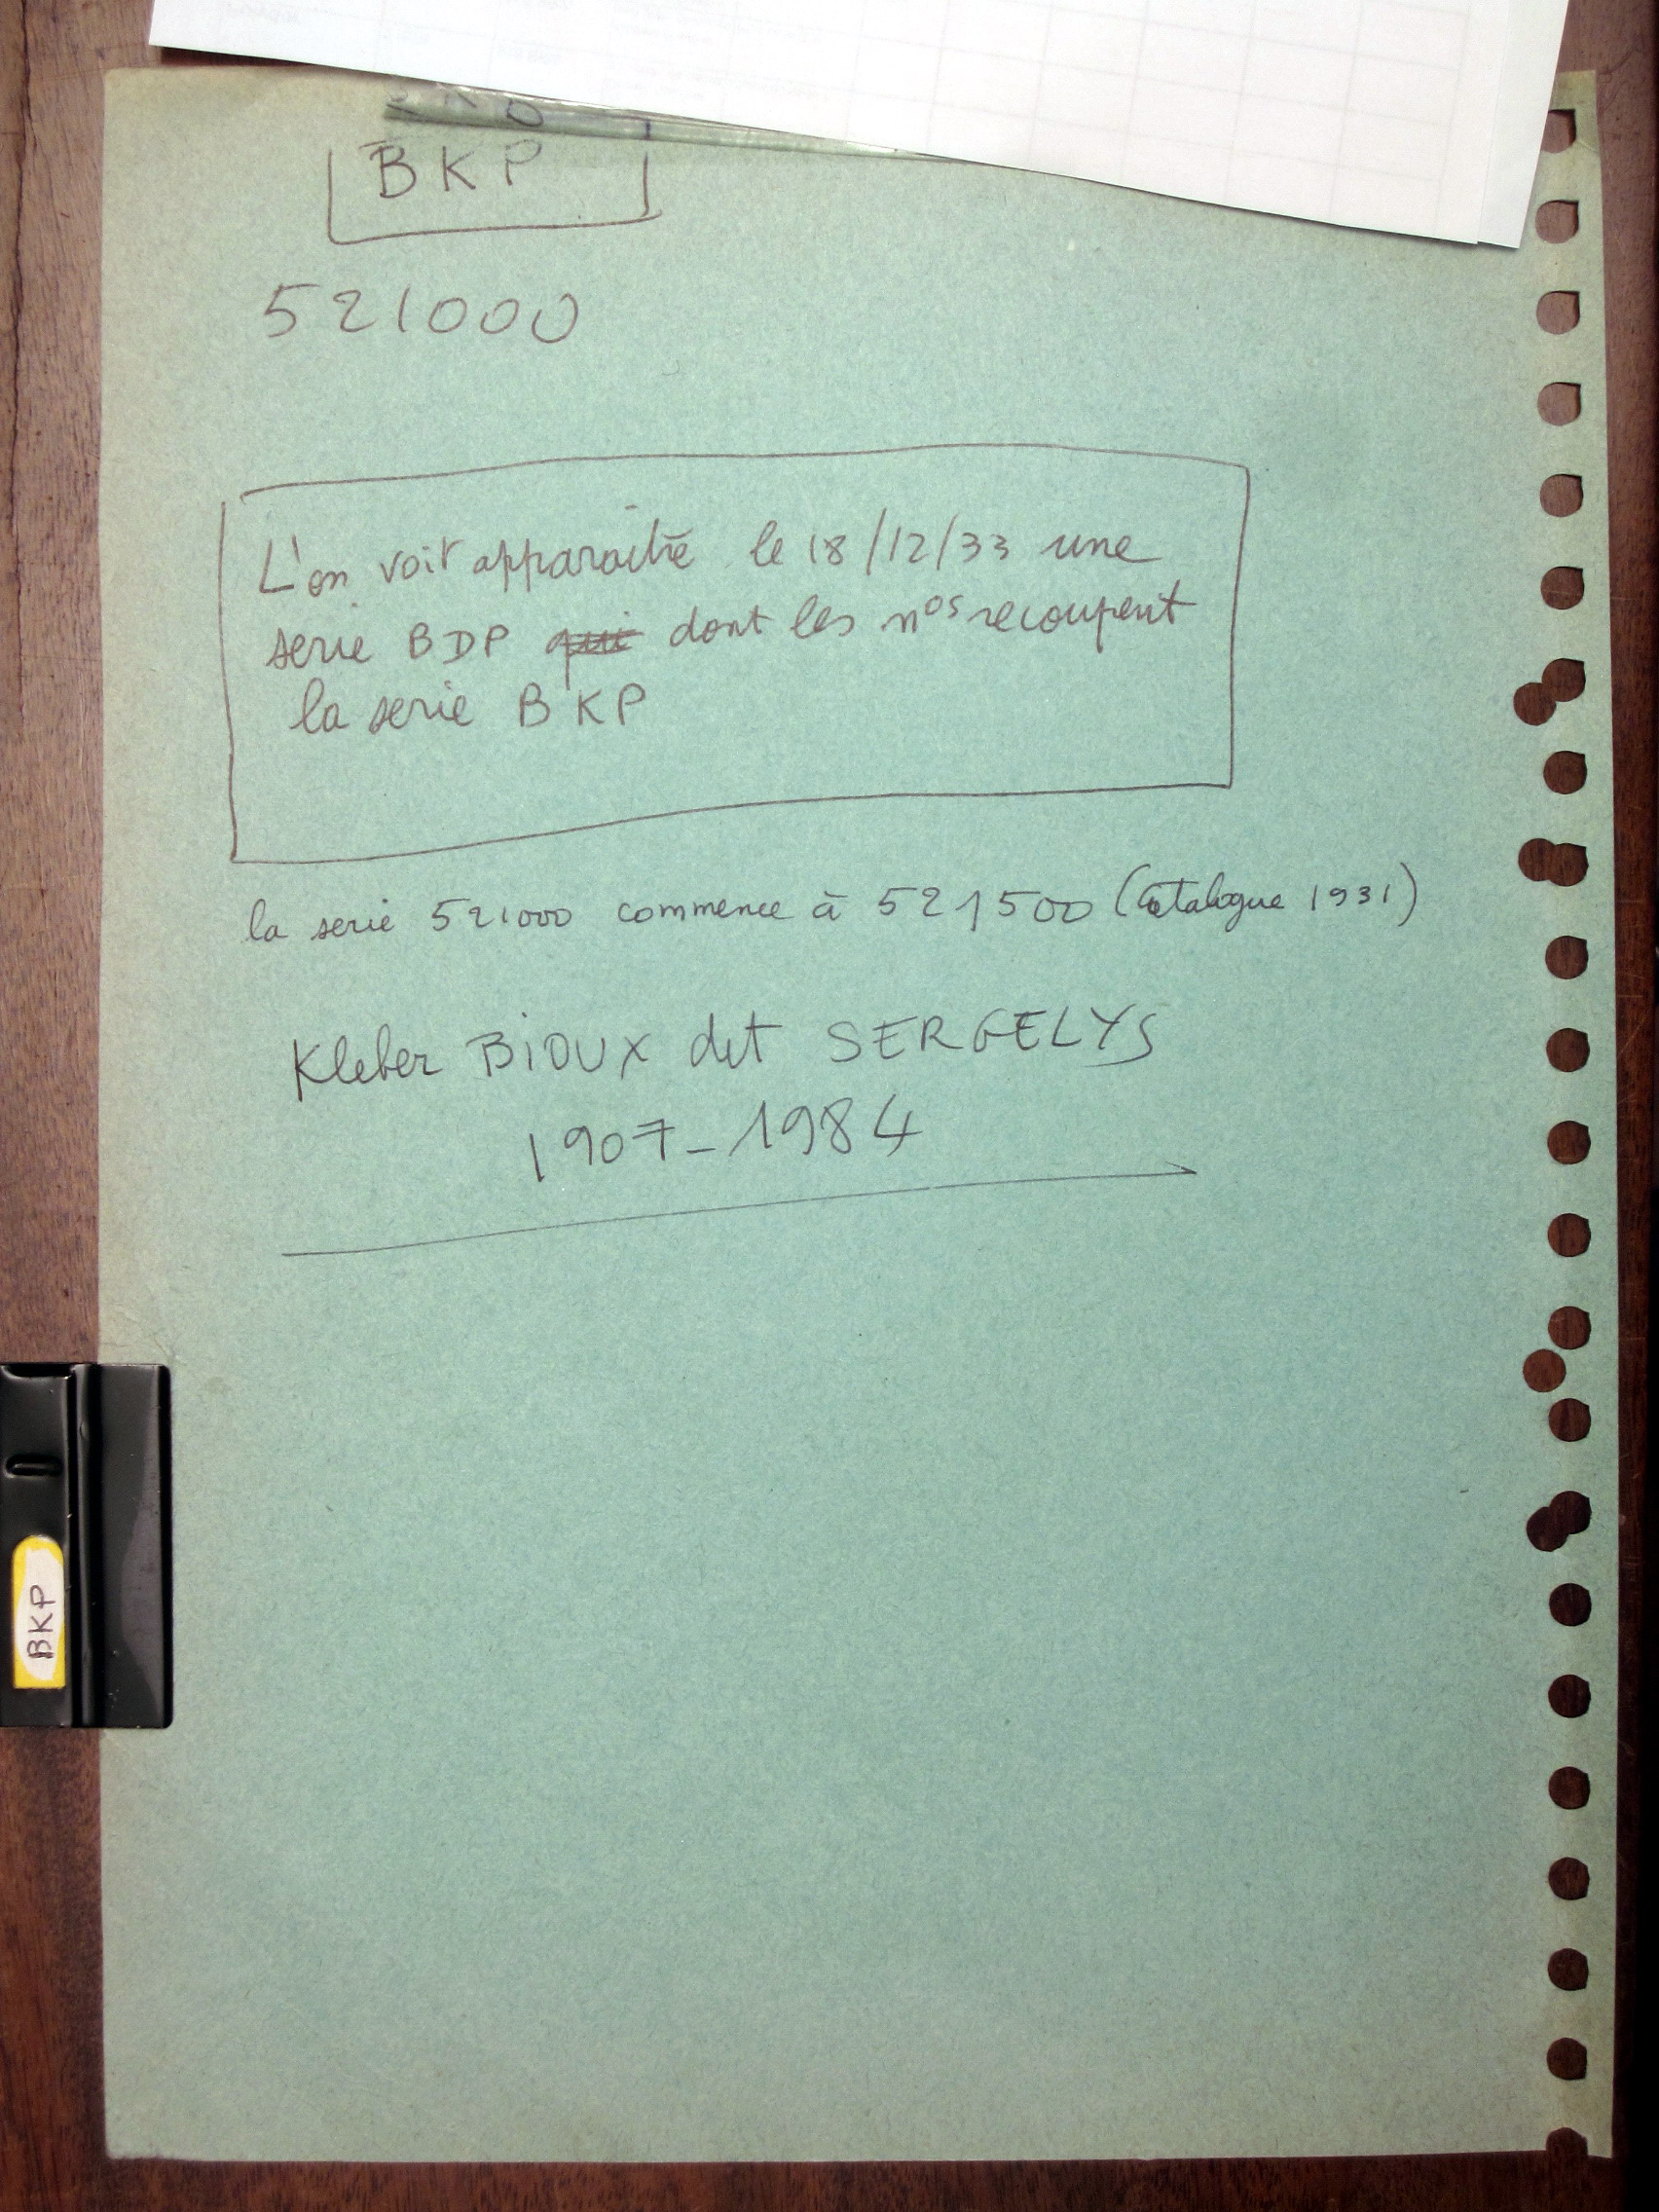 BKP
521000
L'on voit apparaitre le 18/12/33 une
serie BDP qui dont les nos recoupent
la serie BKP
la serie 521000 commence à 521500 (Catalogue 1931)
Kleber BiOUX dit SERGELYS
1907-1984
BKP